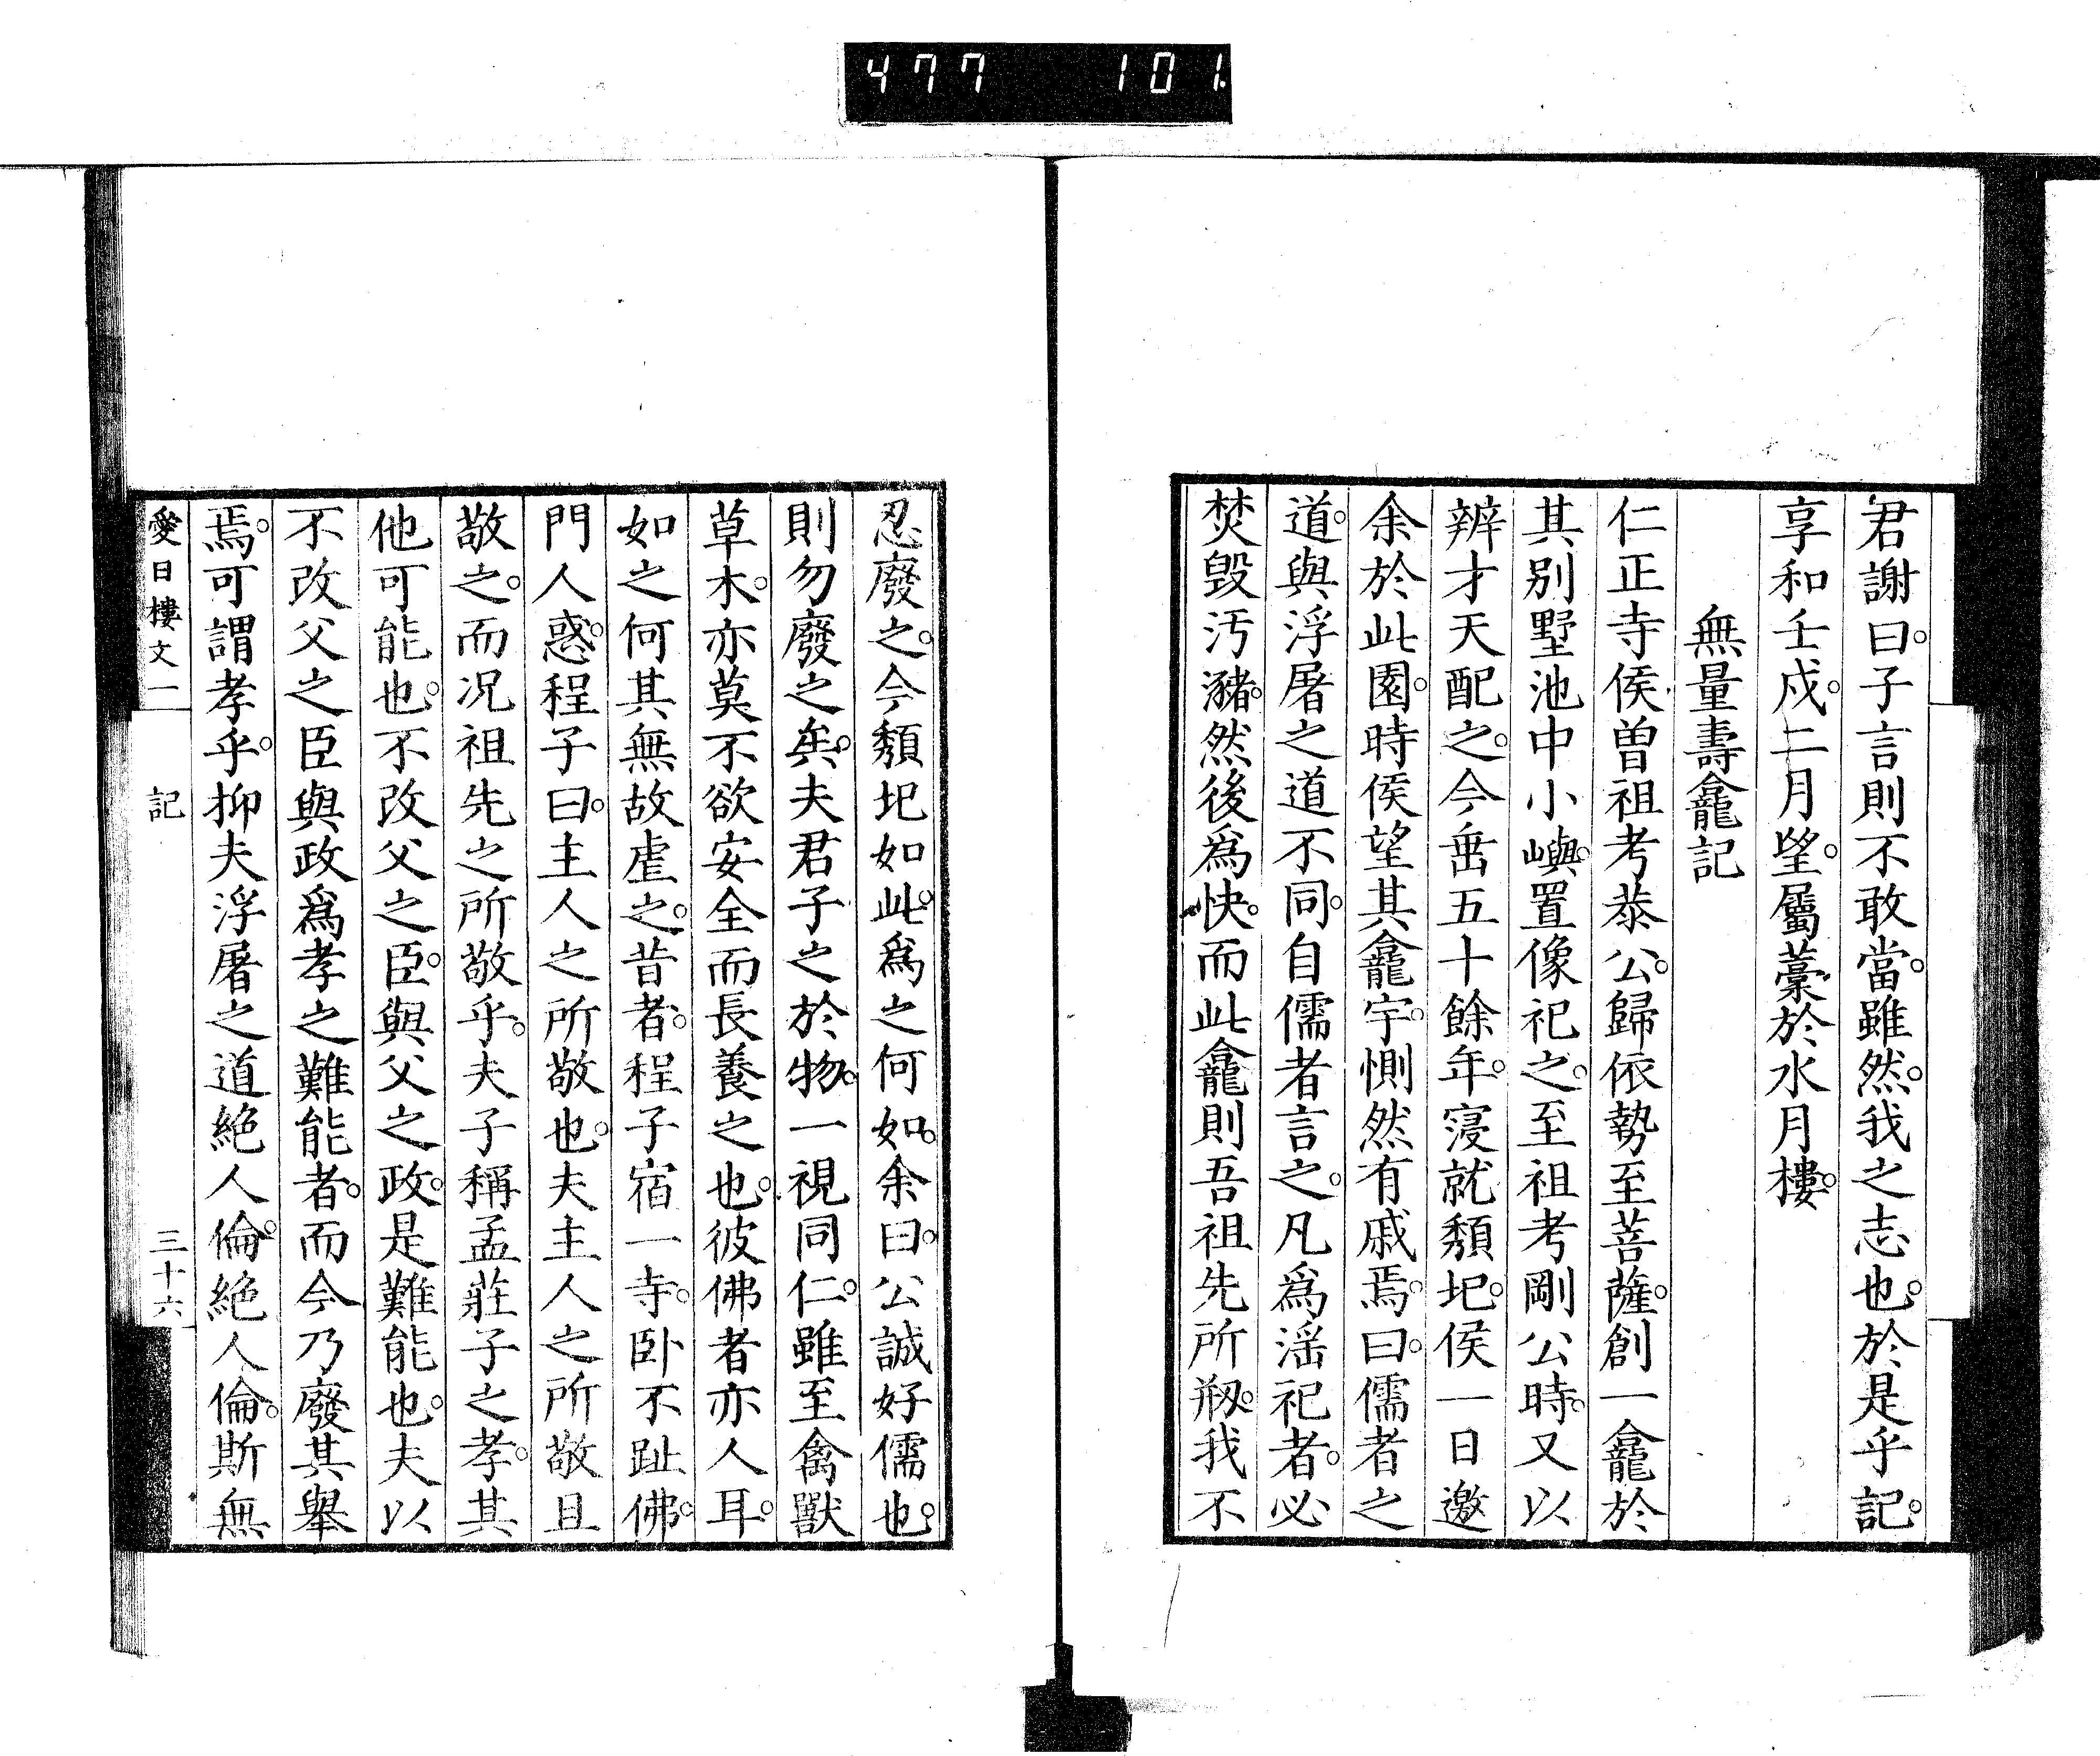 477 101
君謝曰。子言則不敢當。雖然。我之志也。於是乎記。
享和壬戌。二月望。屬藁於水月樓。
無量壽龕記
仁正寺侯曽祖考恭公。歸依勢至菩薩。創一龕於
其別墅池中小嶼。置像祀之。至祖考剛公時。又以
辨才天配之。今垂五十餘年。寖就頽圯。侯一日邀
余於此園。時侯望其龕宇。惻然有戚焉。曰。儒者之
道。與浮屠之道不同。自儒者言之。凡爲淫祀者。必
焚毀汚瀦。然後爲快。而此龕則吾祖先所剏。我不
忍廢之。今頽圯如此。爲之何如。余曰。公誠好儒也。
則勿廢之矣。夫君子之於物。一視同仁。雖至禽獸
草木。亦莫不欲安全而長養之也。彼佛者亦人耳。
如之何其無故虐之。昔者。程子宿一寺。卧不趾佛。
門人惑。程子曰。主人之所敬也。夫主人之所敬且
敬之。而況祖先之所敬乎。夫子稱孟莊子之孝。其
他可能也。不改父之臣。與父之政。是難能也。夫以
不改父之臣與政爲孝之難能者。而今乃廢其舉
焉。可謂孝乎。抑夫浮屠之道絶人倫。絶人倫。斯無
愛日樓文一 記 三十六